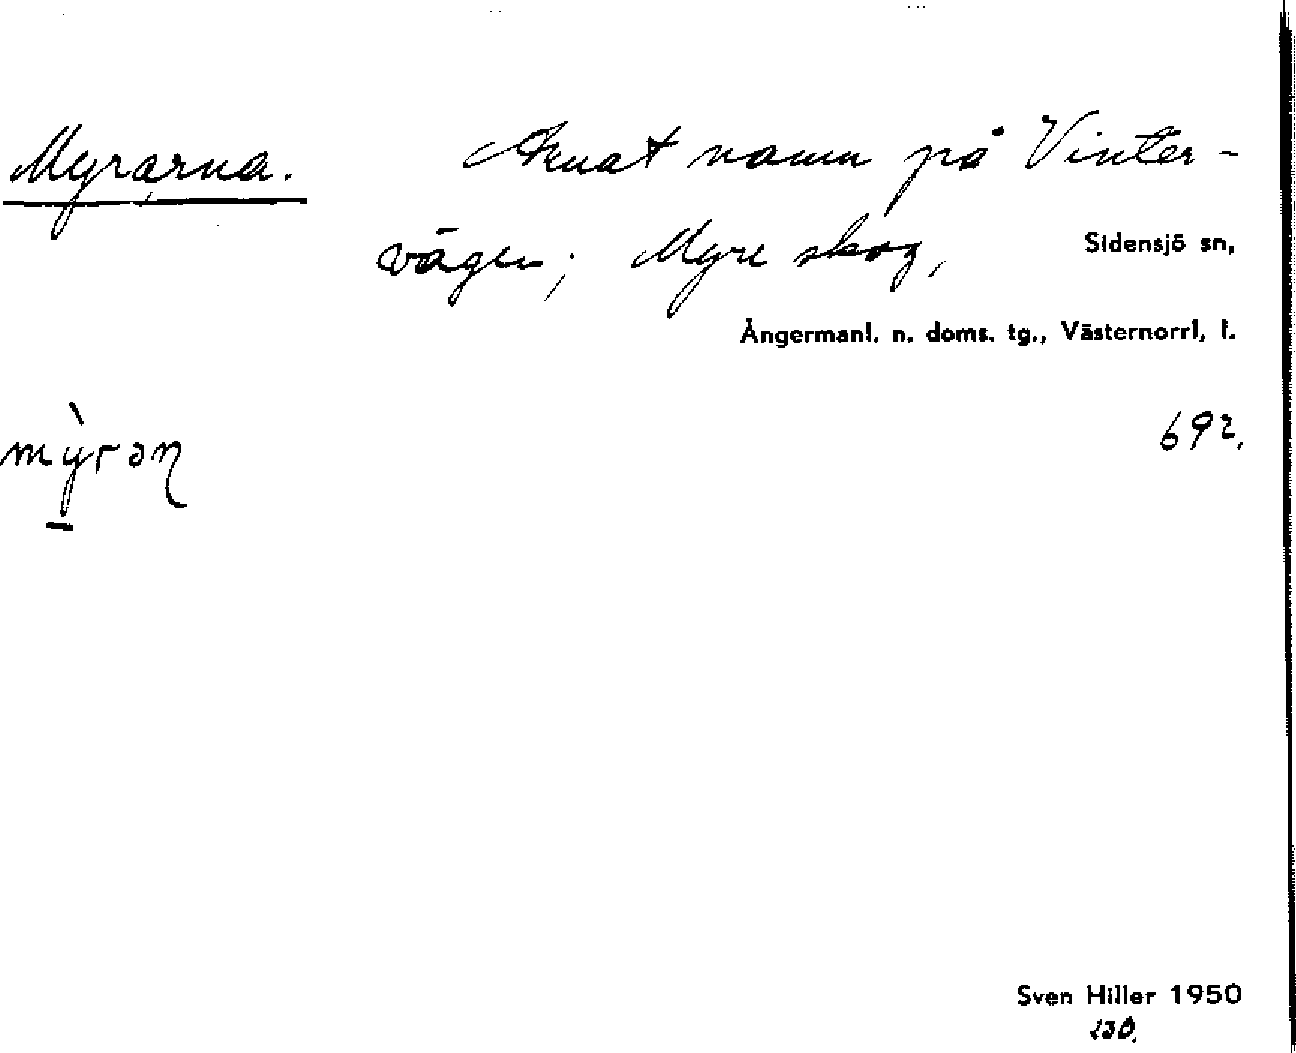 Myrarna. Annat namn på Vinter-
vägen; Myre skog,
Sidensjö sn,
Ångermanl. n. doms. tg., Västernorrl. l.
mỳran
692.
Sven Hiller 1950